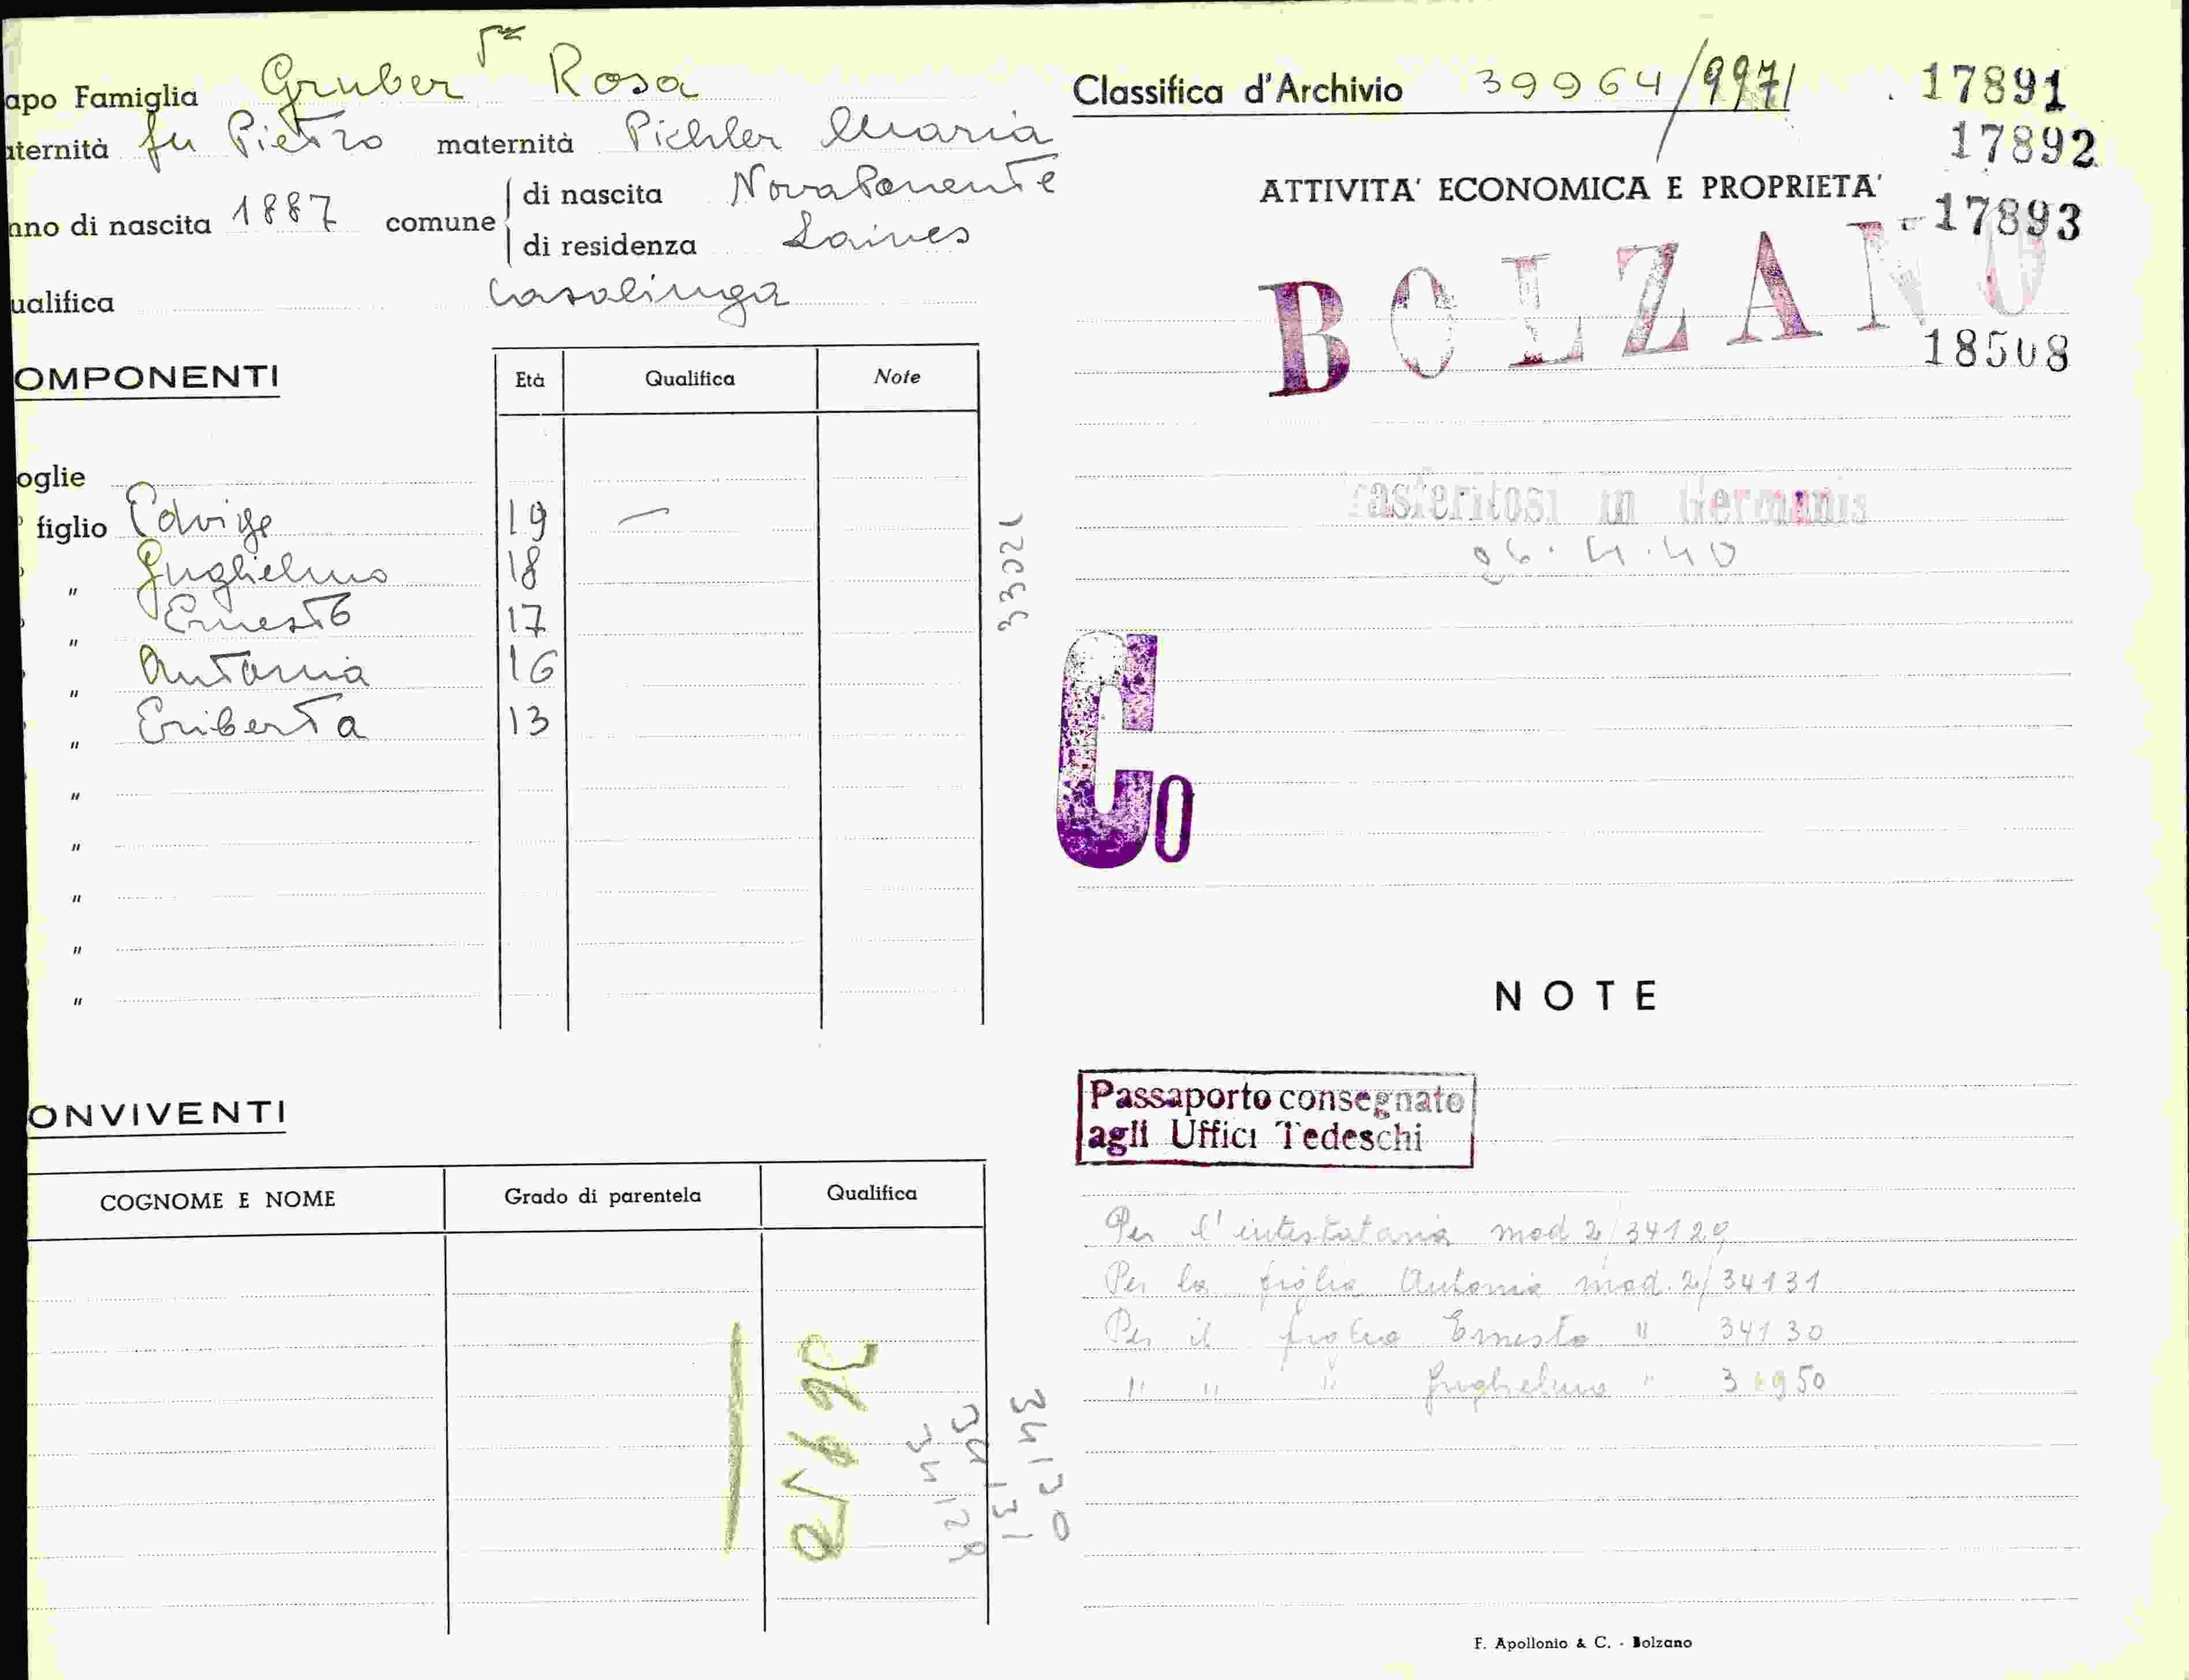 apo Famiglia Gruber Rosa
aternità fu Pietro maternità Pichler Maria
nno di nascita 1887 comune di nascita Nova Ponente
di residenza Laives
ualifica Casalinga
OMPONENTI
Età Qualifica Note
oglie
figlio Edvige 19 —
" Guglielmo 18
" Ernesto 17
" Antonia 16
" Eriberta 13
"
"
"
"
"
33021
ONVIVENTI
COGNOME E NOME Grado di parentela Qualifica
34129
34131
34130
Classifica d'Archivio 39964/9971
17891
17892
17893
ATTIVITA' ECONOMICA E PROPRIETA'
BOLZANO
18508
rasferitosi in Germania
26.4.40
Co
NOTE
Passaporto consegnato
agli Uffici Tedeschi
Per l'intestataria mod 2/34129
Per la figlia Antonia mod. 2/34131
Per il figlio Ernesto " 34130
" " " Guglielmo "
F. Apollonio & C. - Bolzano